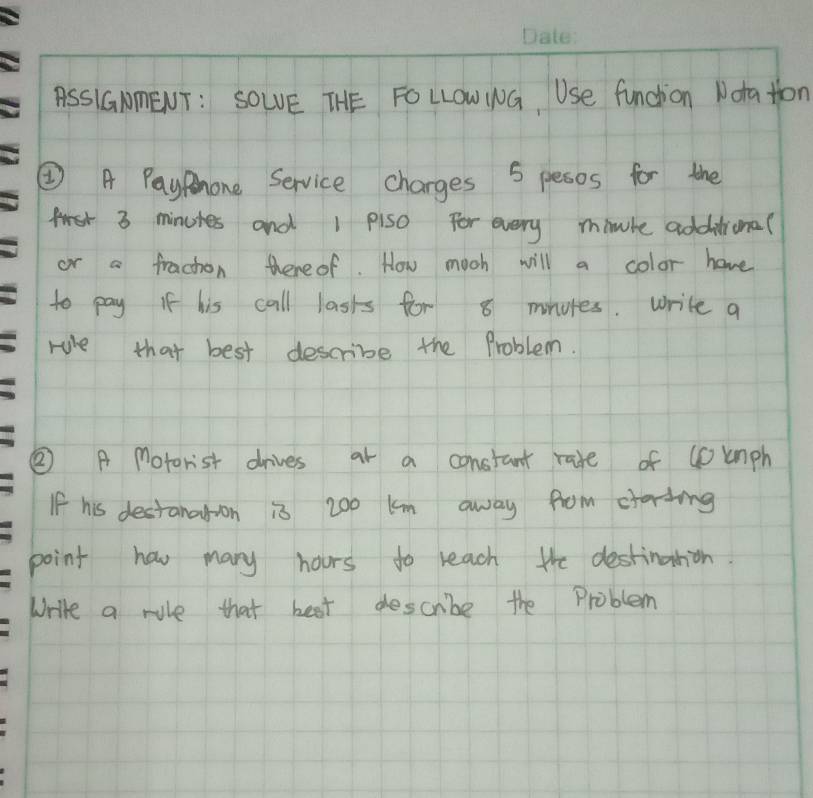 Date:
ASSIGNMENT: SOLVE THE FOLLOWING, Use function Notation
① A Payphone Service charges 5 pesos for the
first 3 minutes and 1 PISO For every minute additional
or a fraction thereof. How much will a color have
to pay if his call lasts for 8 minutes. Write a
rule that best describe the Problem.
② A Motorist drives at a constant rate of kmph
If his destanation is 200 km away from starting
point how many hours to reach the destination.
Write a rule that best describe the Problem